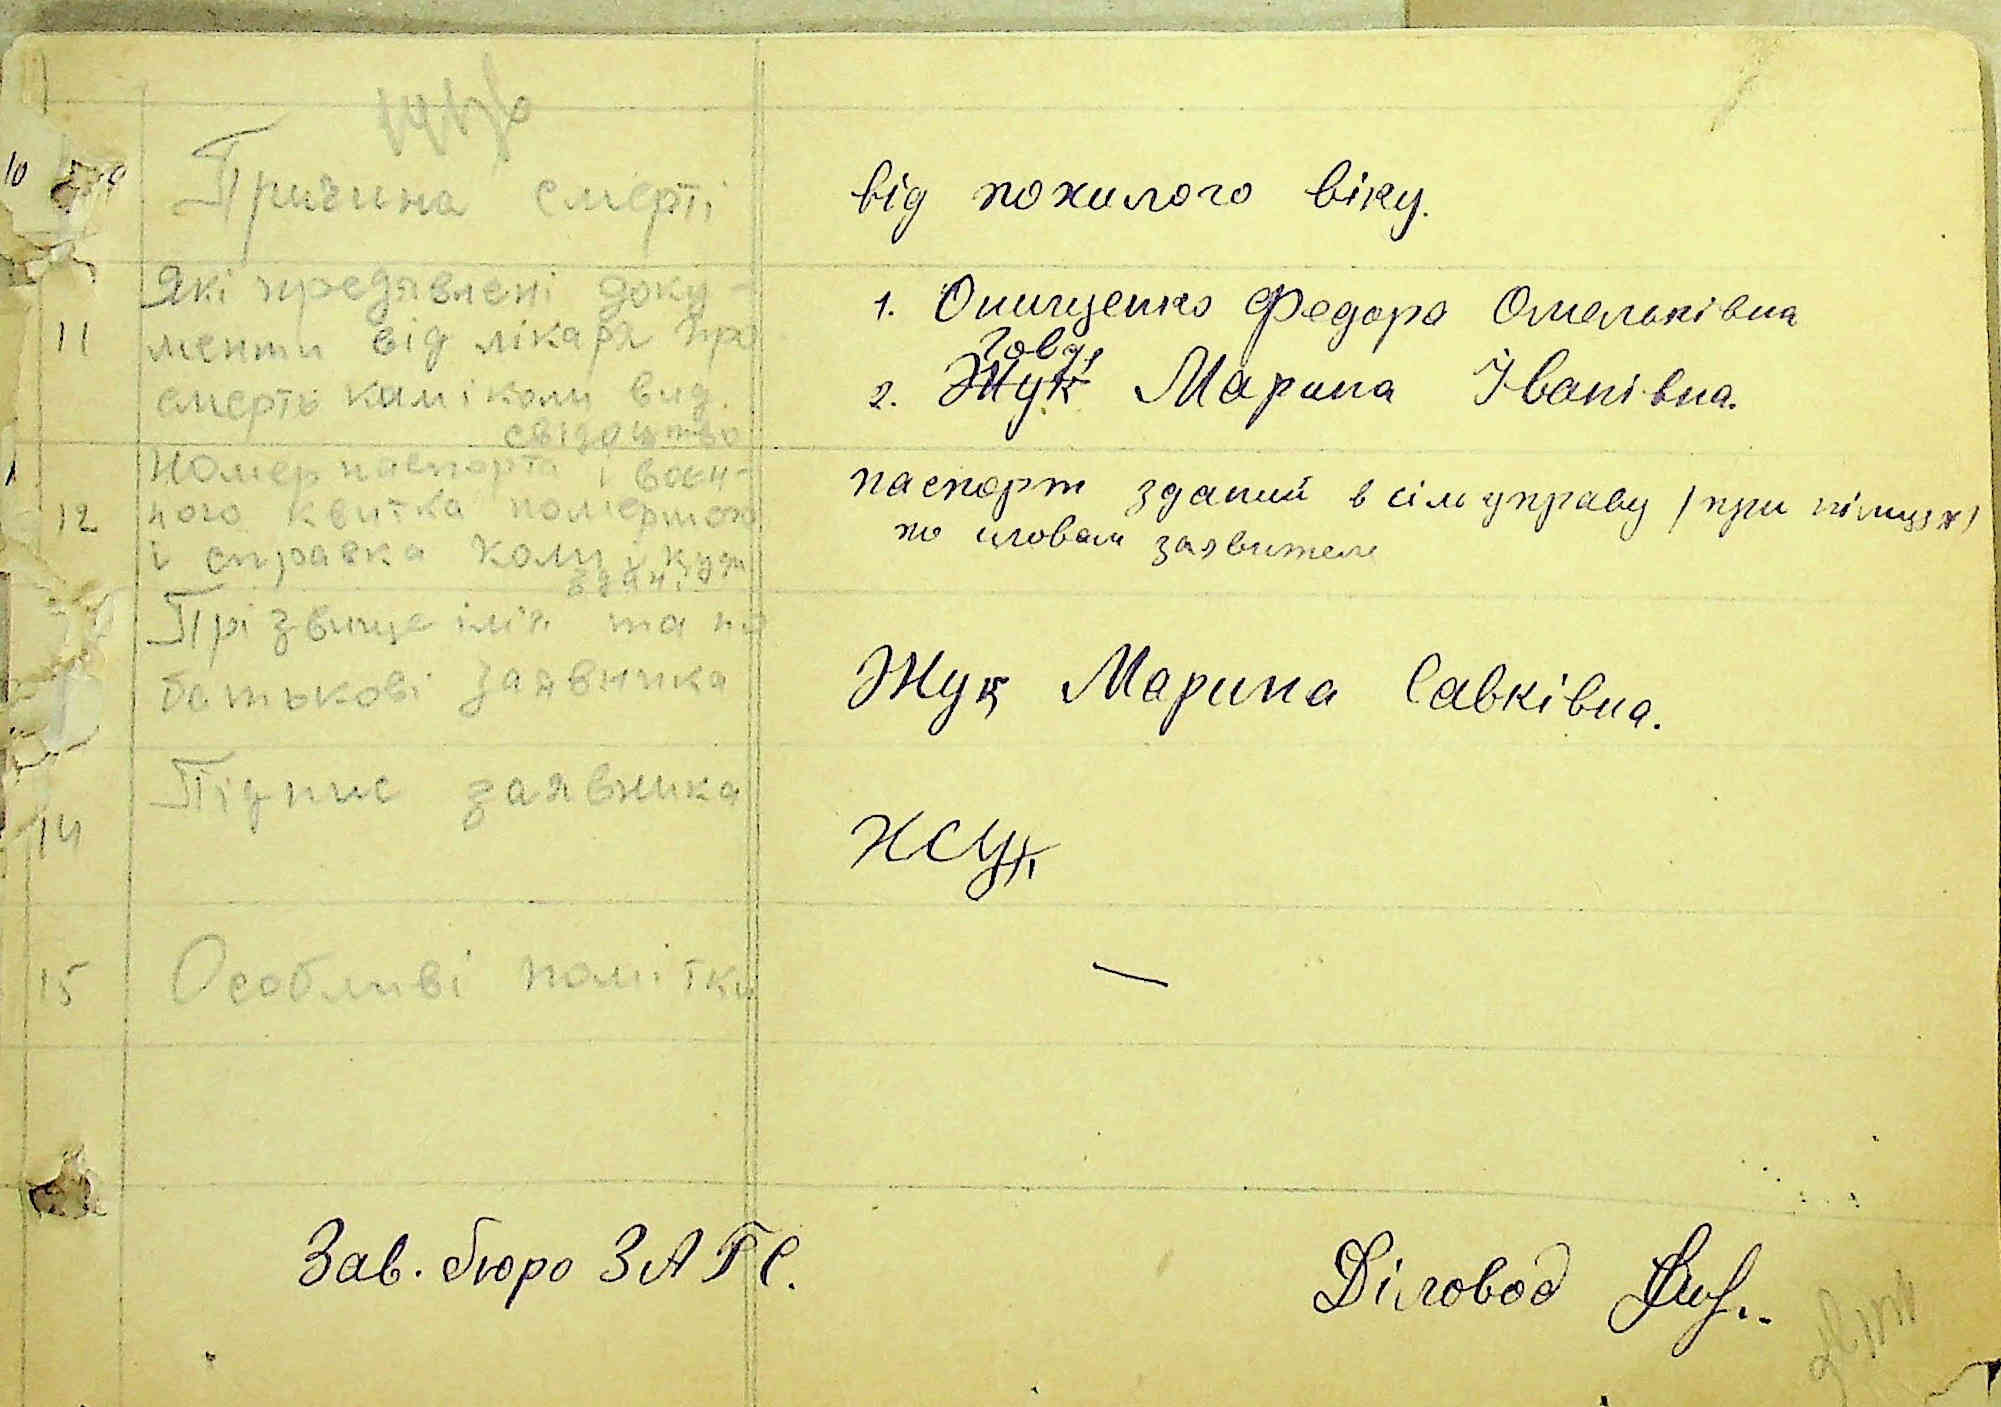 10 Причина смерті від похилого віку.
Які предявлені доку-
11 менти від лікаря про
смерть ким і коли вид.
свідоцтво
1. Онищенко Федора Омельківна
Говд
2. Жук Марина Іванівна.
Номер паспорта і воєн-
12 ного квитка помершого
і справка коли і куди
здані
паспорт зданий в сільуправу /при німцях/
по словам заявителя
Прізвище імя та по
батькові заявника
Жук Марина Савківна.
14 Підпис заявника
ЖУК
15 Особливі помітки —
Зав. бюро ЗАГС. Діловод